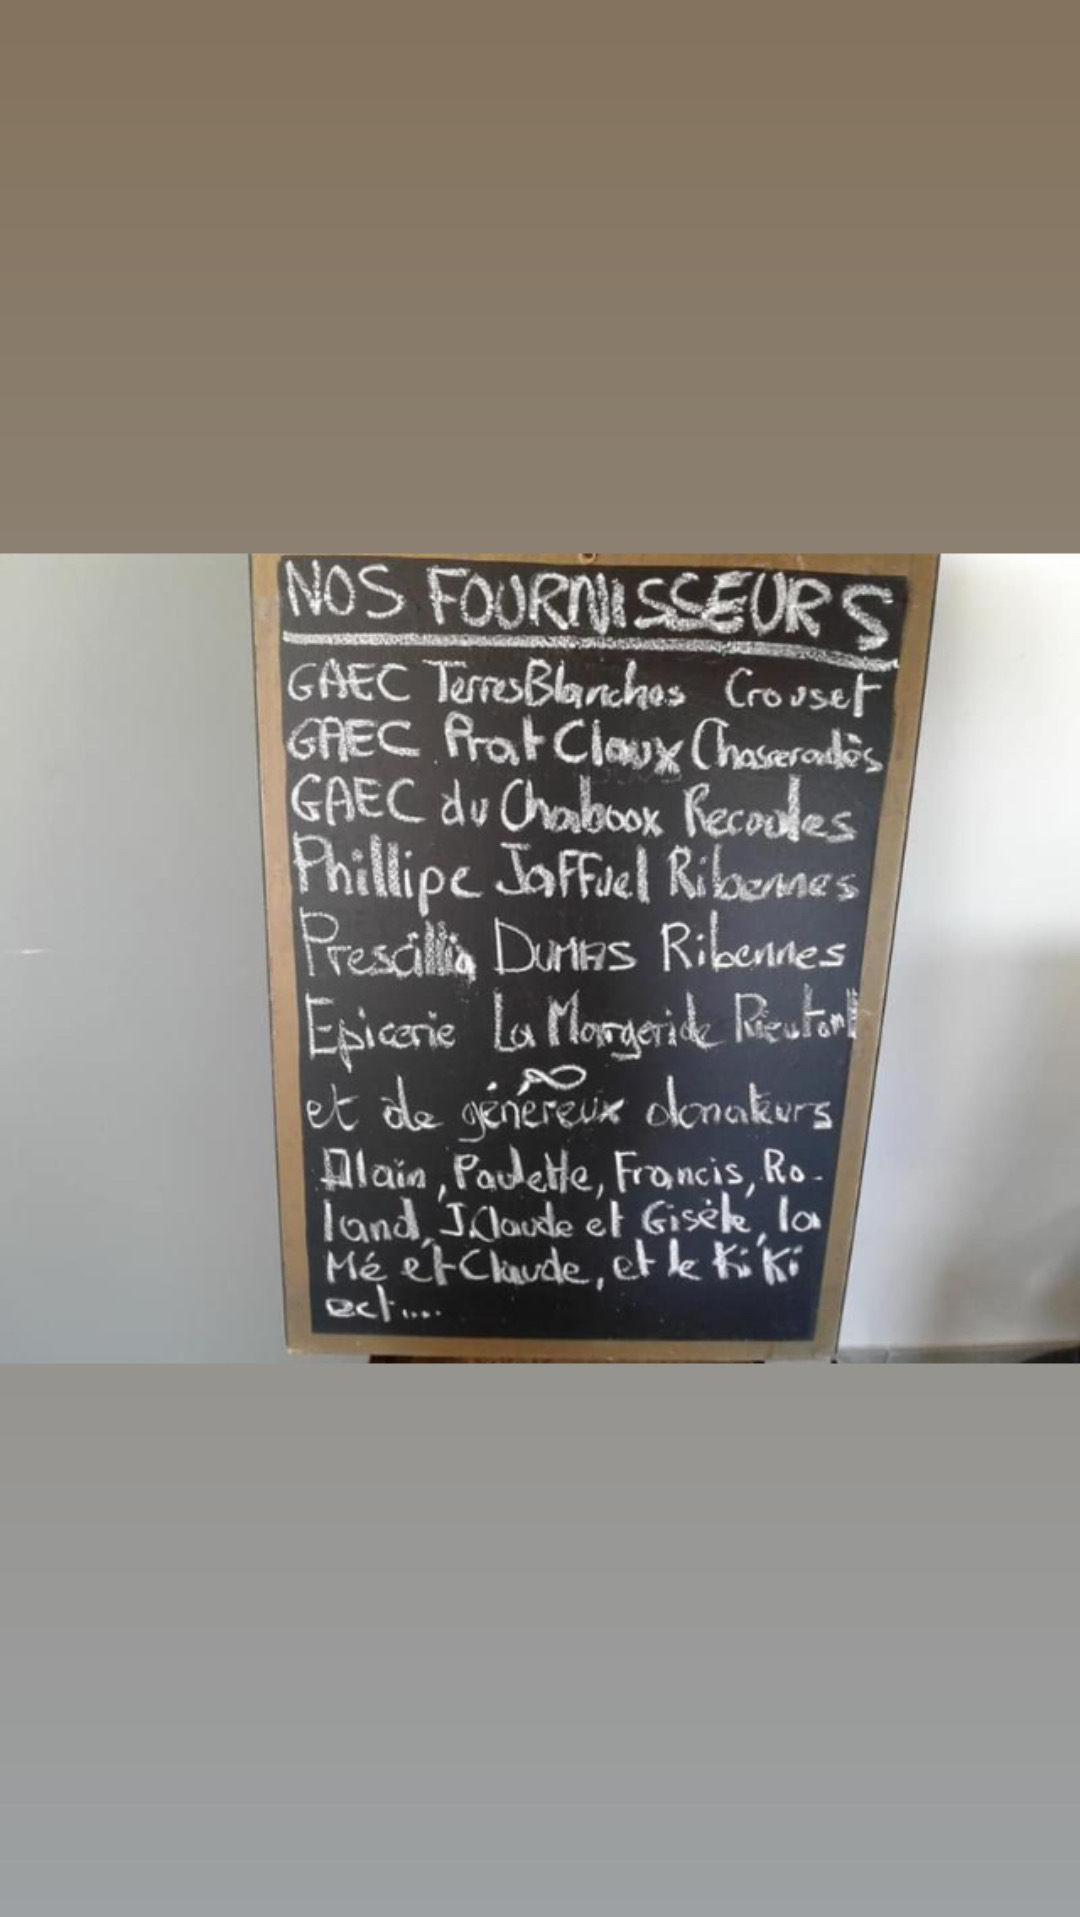 NOS FOURNISSEURS
GAEC Terres Blanches Crouset
GAEC Prat Claux Chasseradès
GAEC du Chaboox Recoules
Phillipe Jaffuel Ribennes
Prescillia DUMAS Ribennes
Epicerie La Margeride Rieutort
et de généreux donateurs
Alain, Paulette, Francis, Ro-
land, J.Claude et Gisèle, la
Mé et Claude, et le KiKi
ect....